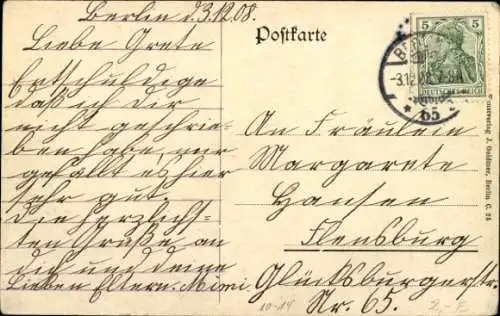 Berlin d. 3.12.08.
Liebe Grete
Entschuldige
daß ich Dir
nicht geschrie-
ben habe, mir
gefällt es hier
sehr gut.
Die herzlich-
sten Grüße an
dich und deine
lieben Eltern. Mimi.
Postkarte
5 5
DEUTSCHES REICH
BERLIN
-3.12.08. 7-8N
* 65 *
An Fräulein
Margarete
Hansen
Flensburg
Glücksburgerstr.
Nr. 65.
J. Goldiner, Berlin C. 24
10-14